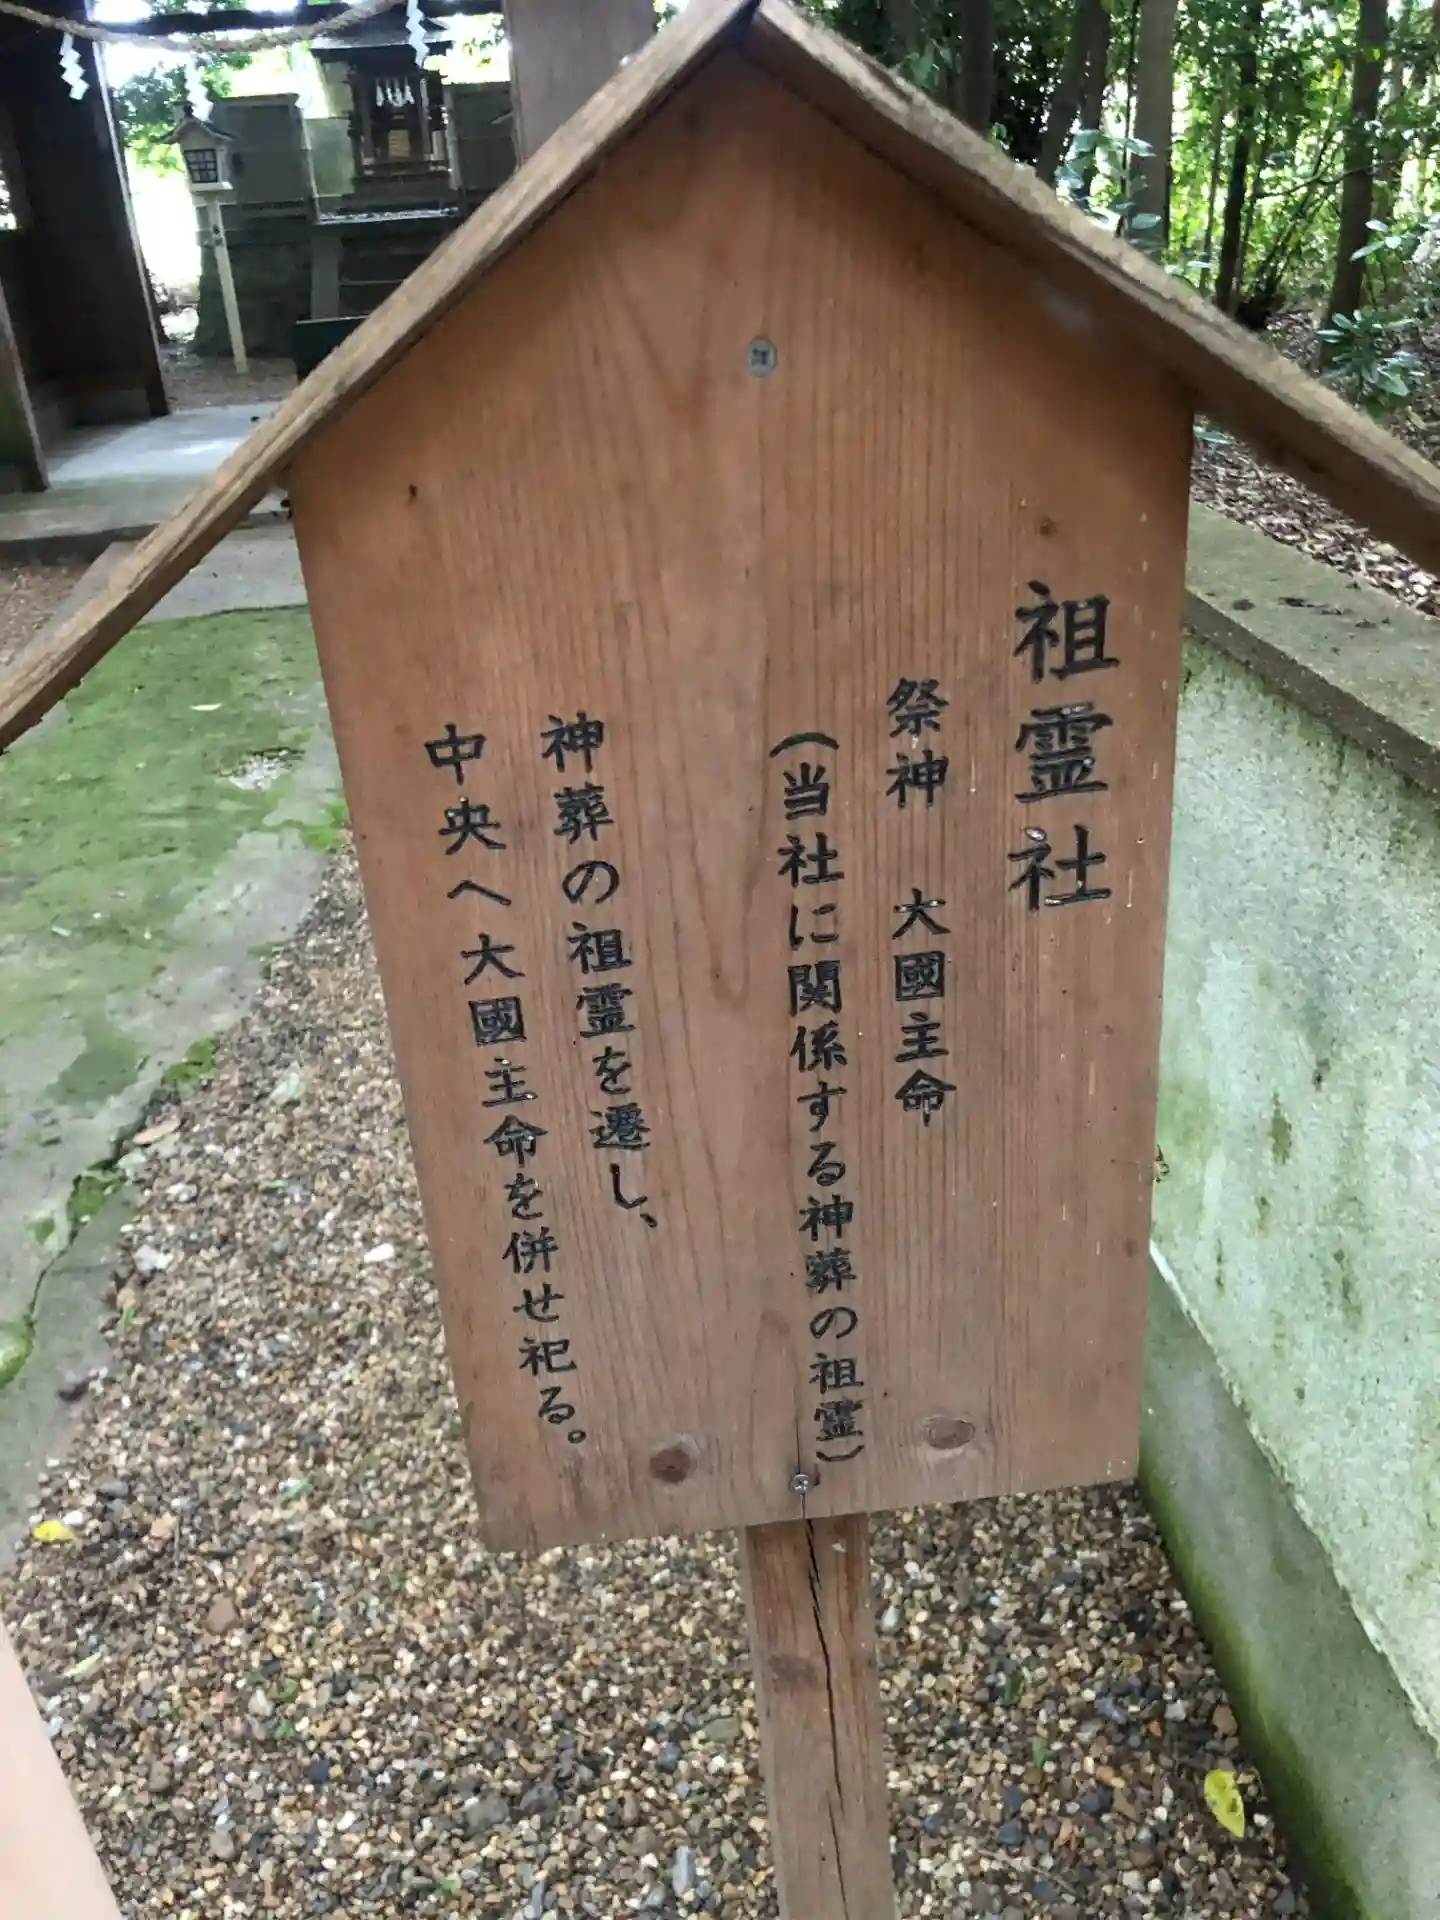 祖霊社
祭神　大國主命
（当社に関係する神葬の祖霊）
神葬の祖霊を遷し、
中央へ大國主命を併せ祀る。